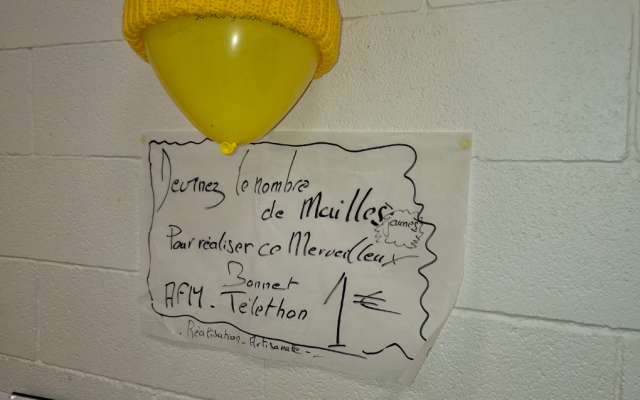 Devinez le nombre
de Mailles
jaunes
Pour réaliser ce Merveilleux
Bonnet
AFM - Téléthon 1€
- Réalisation - Artisanale -